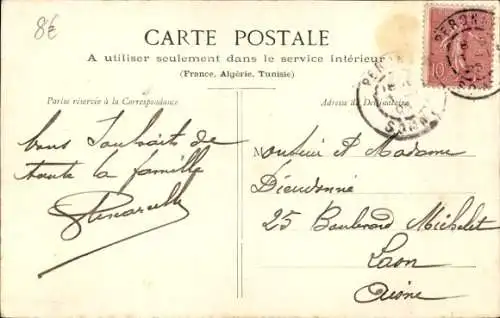 8€
CARTE POSTALE
A utiliser seulement dans le service intérieur
(France, Algérie, Tunisie)
Partie réservée à la Correspondance
Adresse du Destinataire
bons Souhaits de
toute la famille
Monsieur et Madame
Dieudonné
25 Boulevard Michelet
Laon
Aisne
10
PERONNE
SOMME